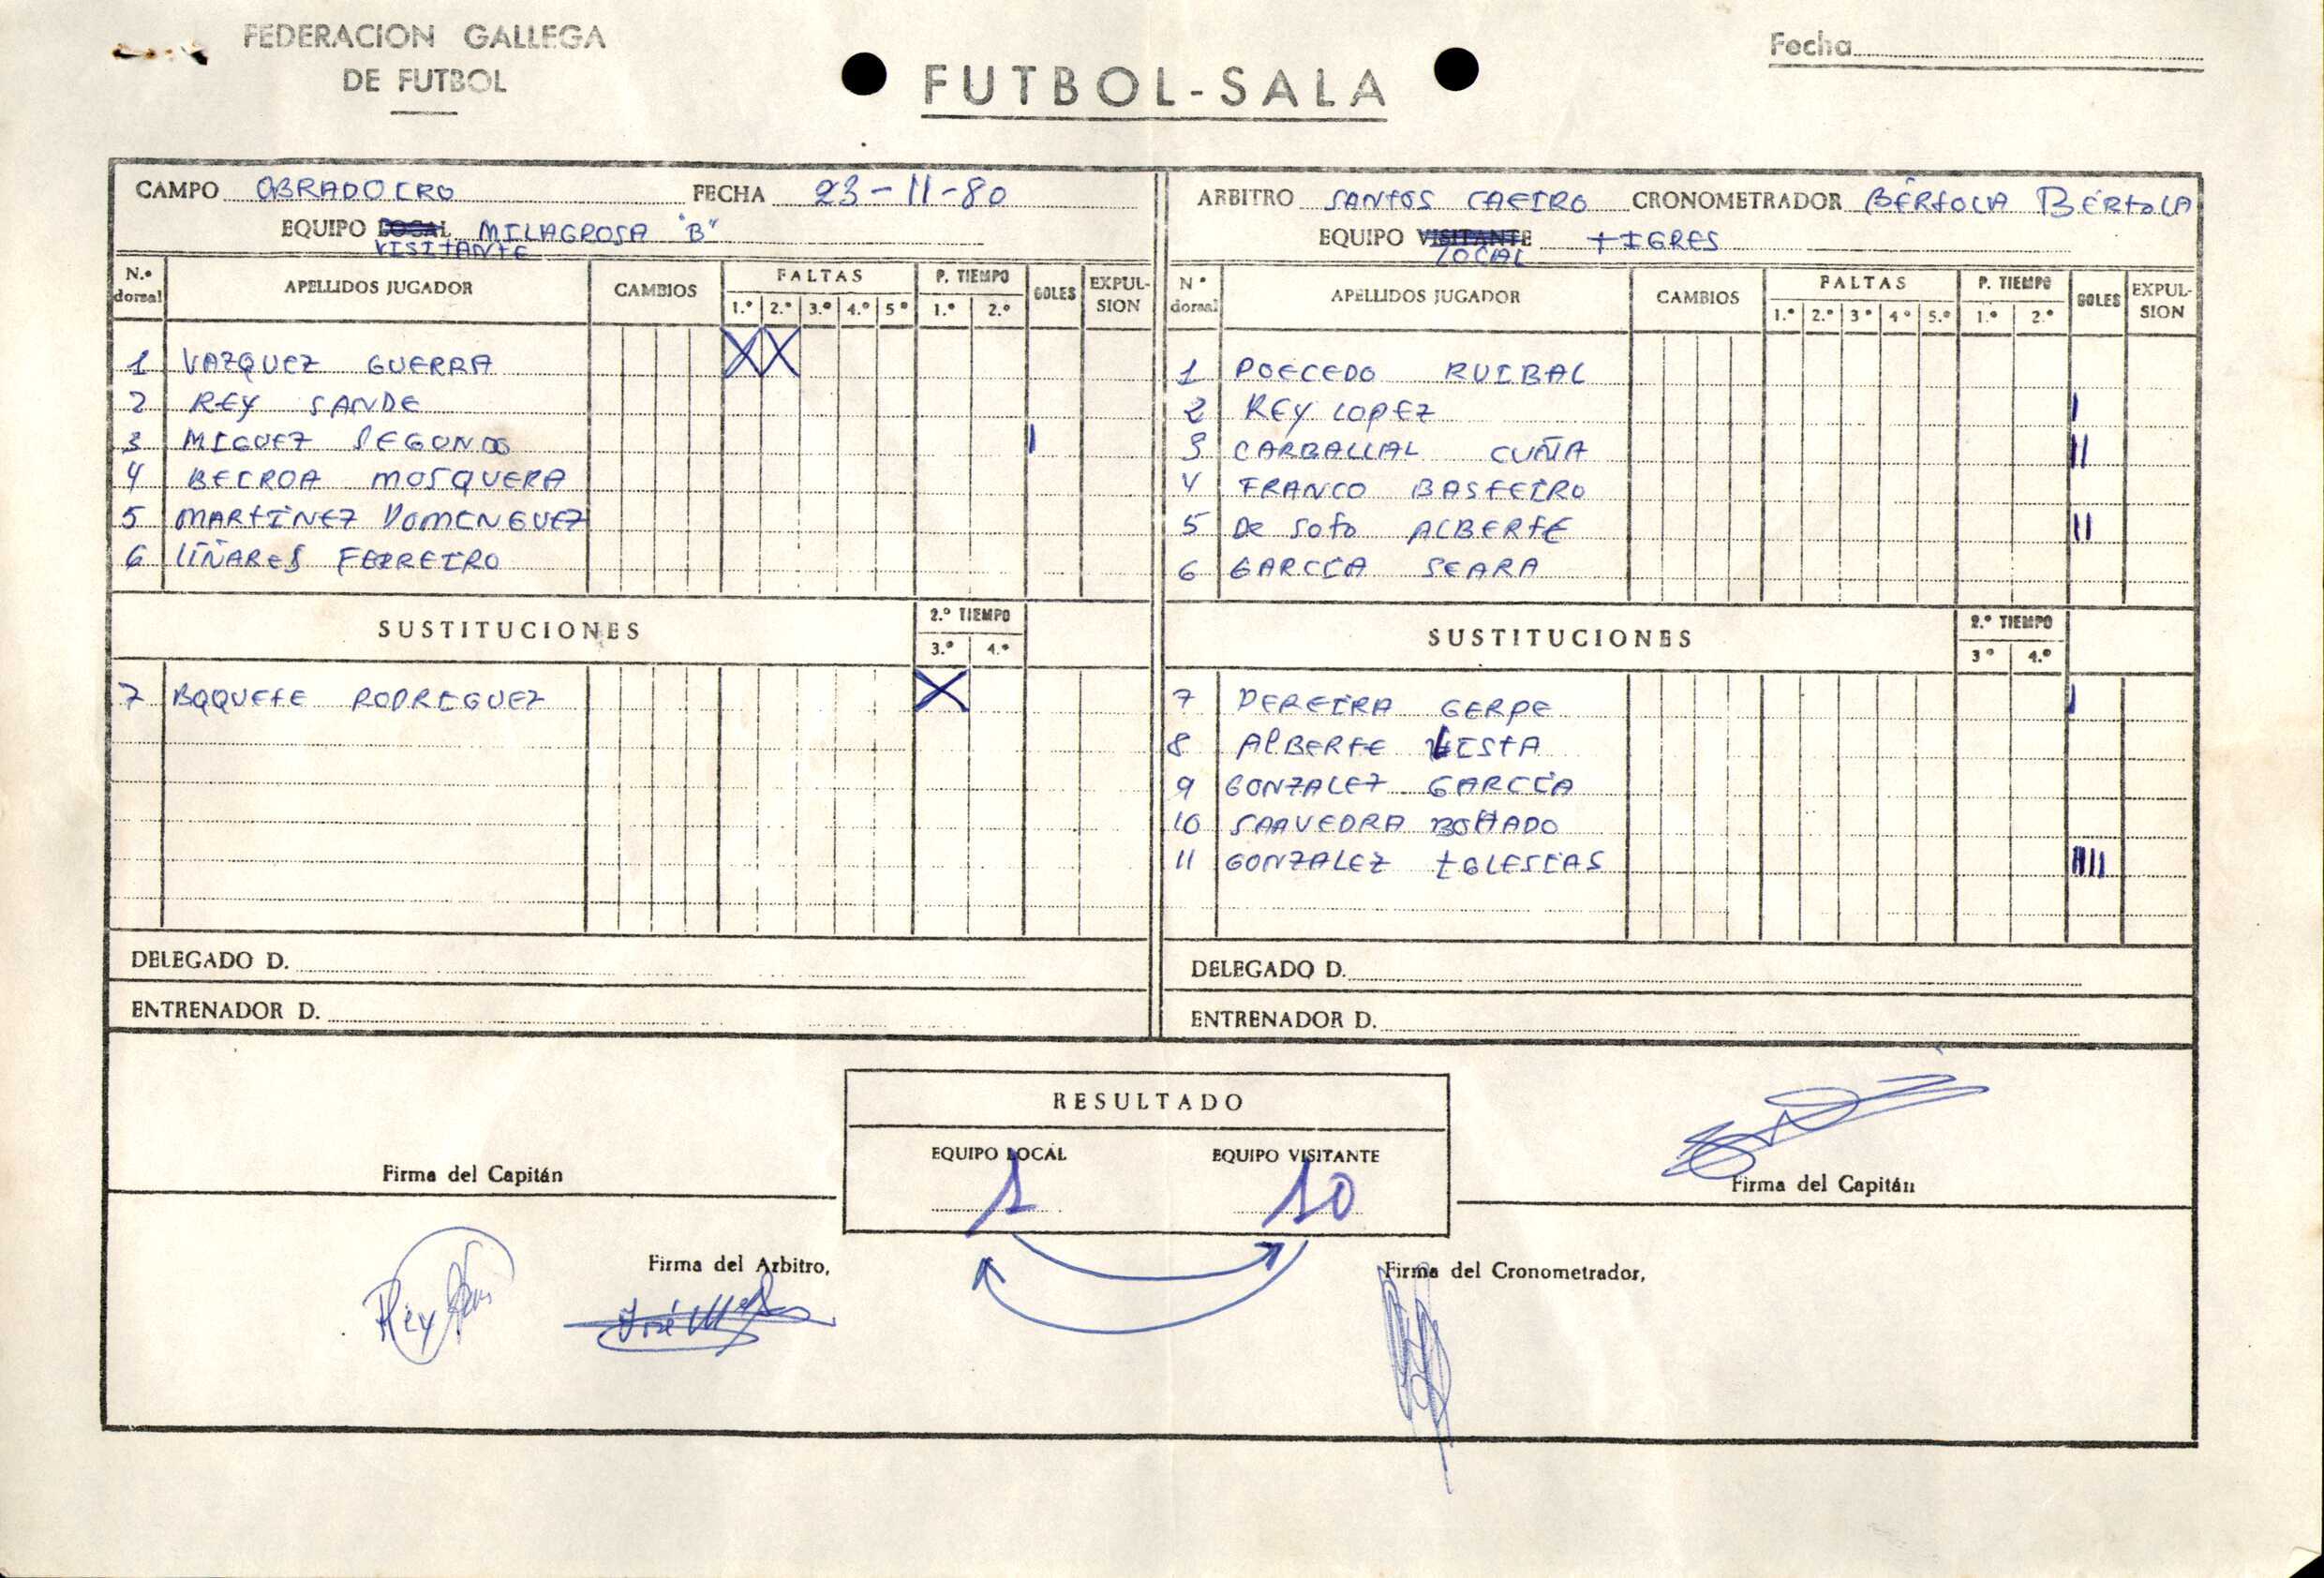 FEDERACION GALLEGA
DE FUTBOL
FUTBOL-SALA
Fecha
CAMPO OBRADOIRO FECHA 23-11-80
EQUIPO LOCAL MILAGROSA "B"
VISITANTE
N.º dorsal APELLIDOS JUGADOR CAMBIOS FALTAS P. TIEMPO GOLES EXPUL-SION
1.º 2.º 3.º 4.º 5º 1.º 2.º
1 VAZQUEZ GUERRA X X
2 REY SANDE
3 MIGUEZ SEGUNDO I
4 BECROA MOSQUERA
5 MARTINEZ DOMINGUEZ
6 LIÑARES FERREIRO
SUSTITUCIONES 2.º TIEMPO
3.º 4.º
7 BAQUETE RODRIGUEZ X
DELEGADO D.
ENTRENADOR D.
ARBITRO SANTOS CAEIRO CRONOMETRADOR BÉRTOLA BÉRTOLA
EQUIPO VISITANTE TIGRES
LOCAL
Nº dorsal APELLIDOS JUGADOR CAMBIOS FALTAS P. TIEMPO GOLES EXPUL-SION
1.º 2.º 3º 4º 5.º 1.º 2.º
1 POECEDO RUIBAL
2 REY LOPEZ I
3 CARBALLAL CUÑA II
4 FRANCO BASTEIRO
5 De Soto ALBERTE II
6 GARCIA SEARA
SUSTITUCIONES 2.º TIEMPO
3º 4.º
7 PEREIRA GERPE I
8 ALBERTE LISTA
9 GONZALEZ GARCIA
10 SAAVEDRA
11 GONZALEZ IGLESIAS IIII
DELEGADO D.
ENTRENADOR D.
RESULTADO
EQUIPO LOCAL EQUIPO VISITANTE
1 10
Firma del Capitán
Firma del Capitán
Firma del Arbitro,
Firma del Cronometrador,
Rey
José